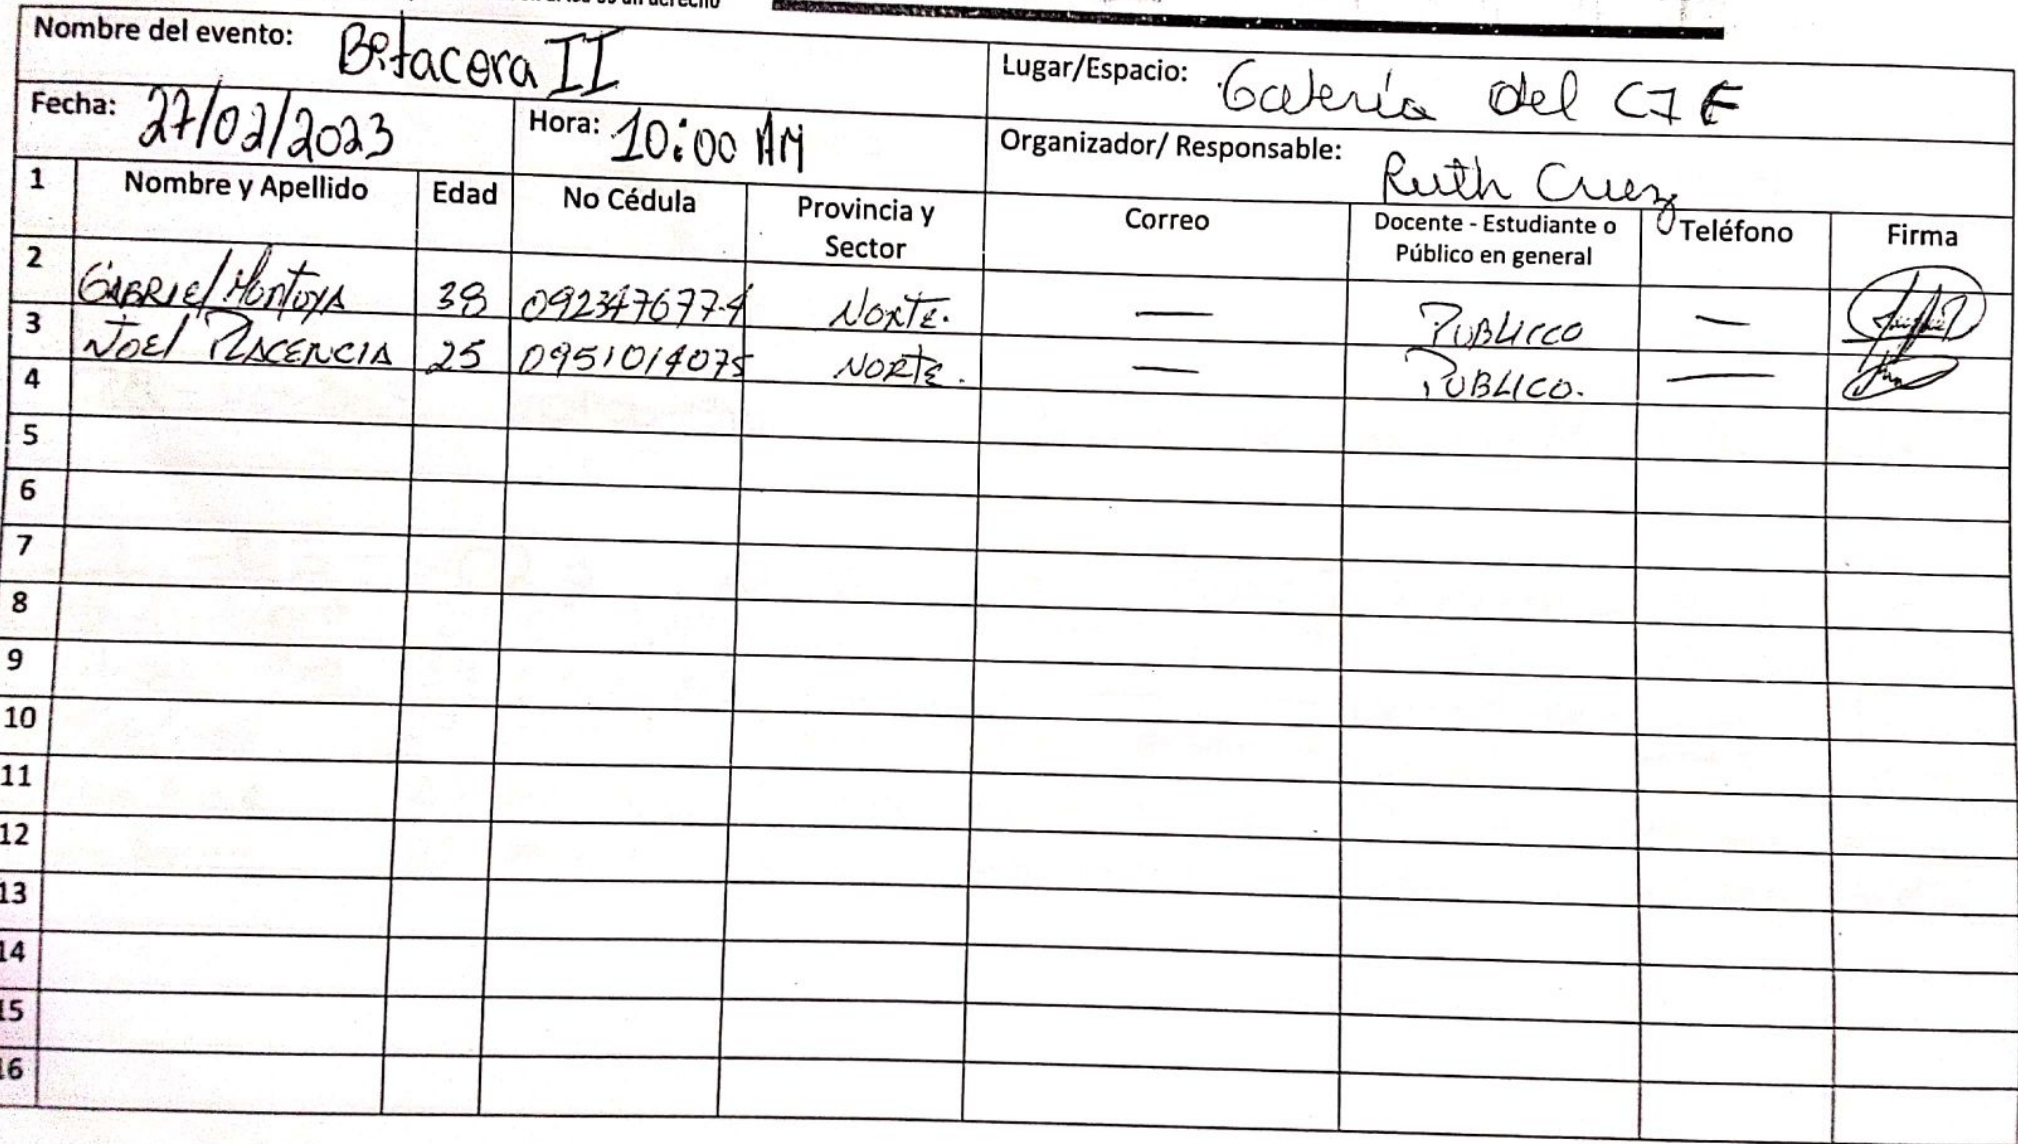 un derecho
Nombre del evento: Bitacora II
Lugar/Espacio: Galería del CJE
Fecha: 27/02/2023 Hora: 10:00 AM
Organizador/ Responsable: Ruth Cruz
1 Nombre y Apellido Edad No Cédula Provincia y Sector Correo Docente - Estudiante o Público en general Teléfono Firma
2 GABRIEl MontoyA 38 0923476774 NORTE. — PUBLICCO —
3 JOEl PLACENCIA 25 0951014075 NORTE. — PUBLICO. —
4
5
6
7
8
9
10
11
12
13
14
15
16